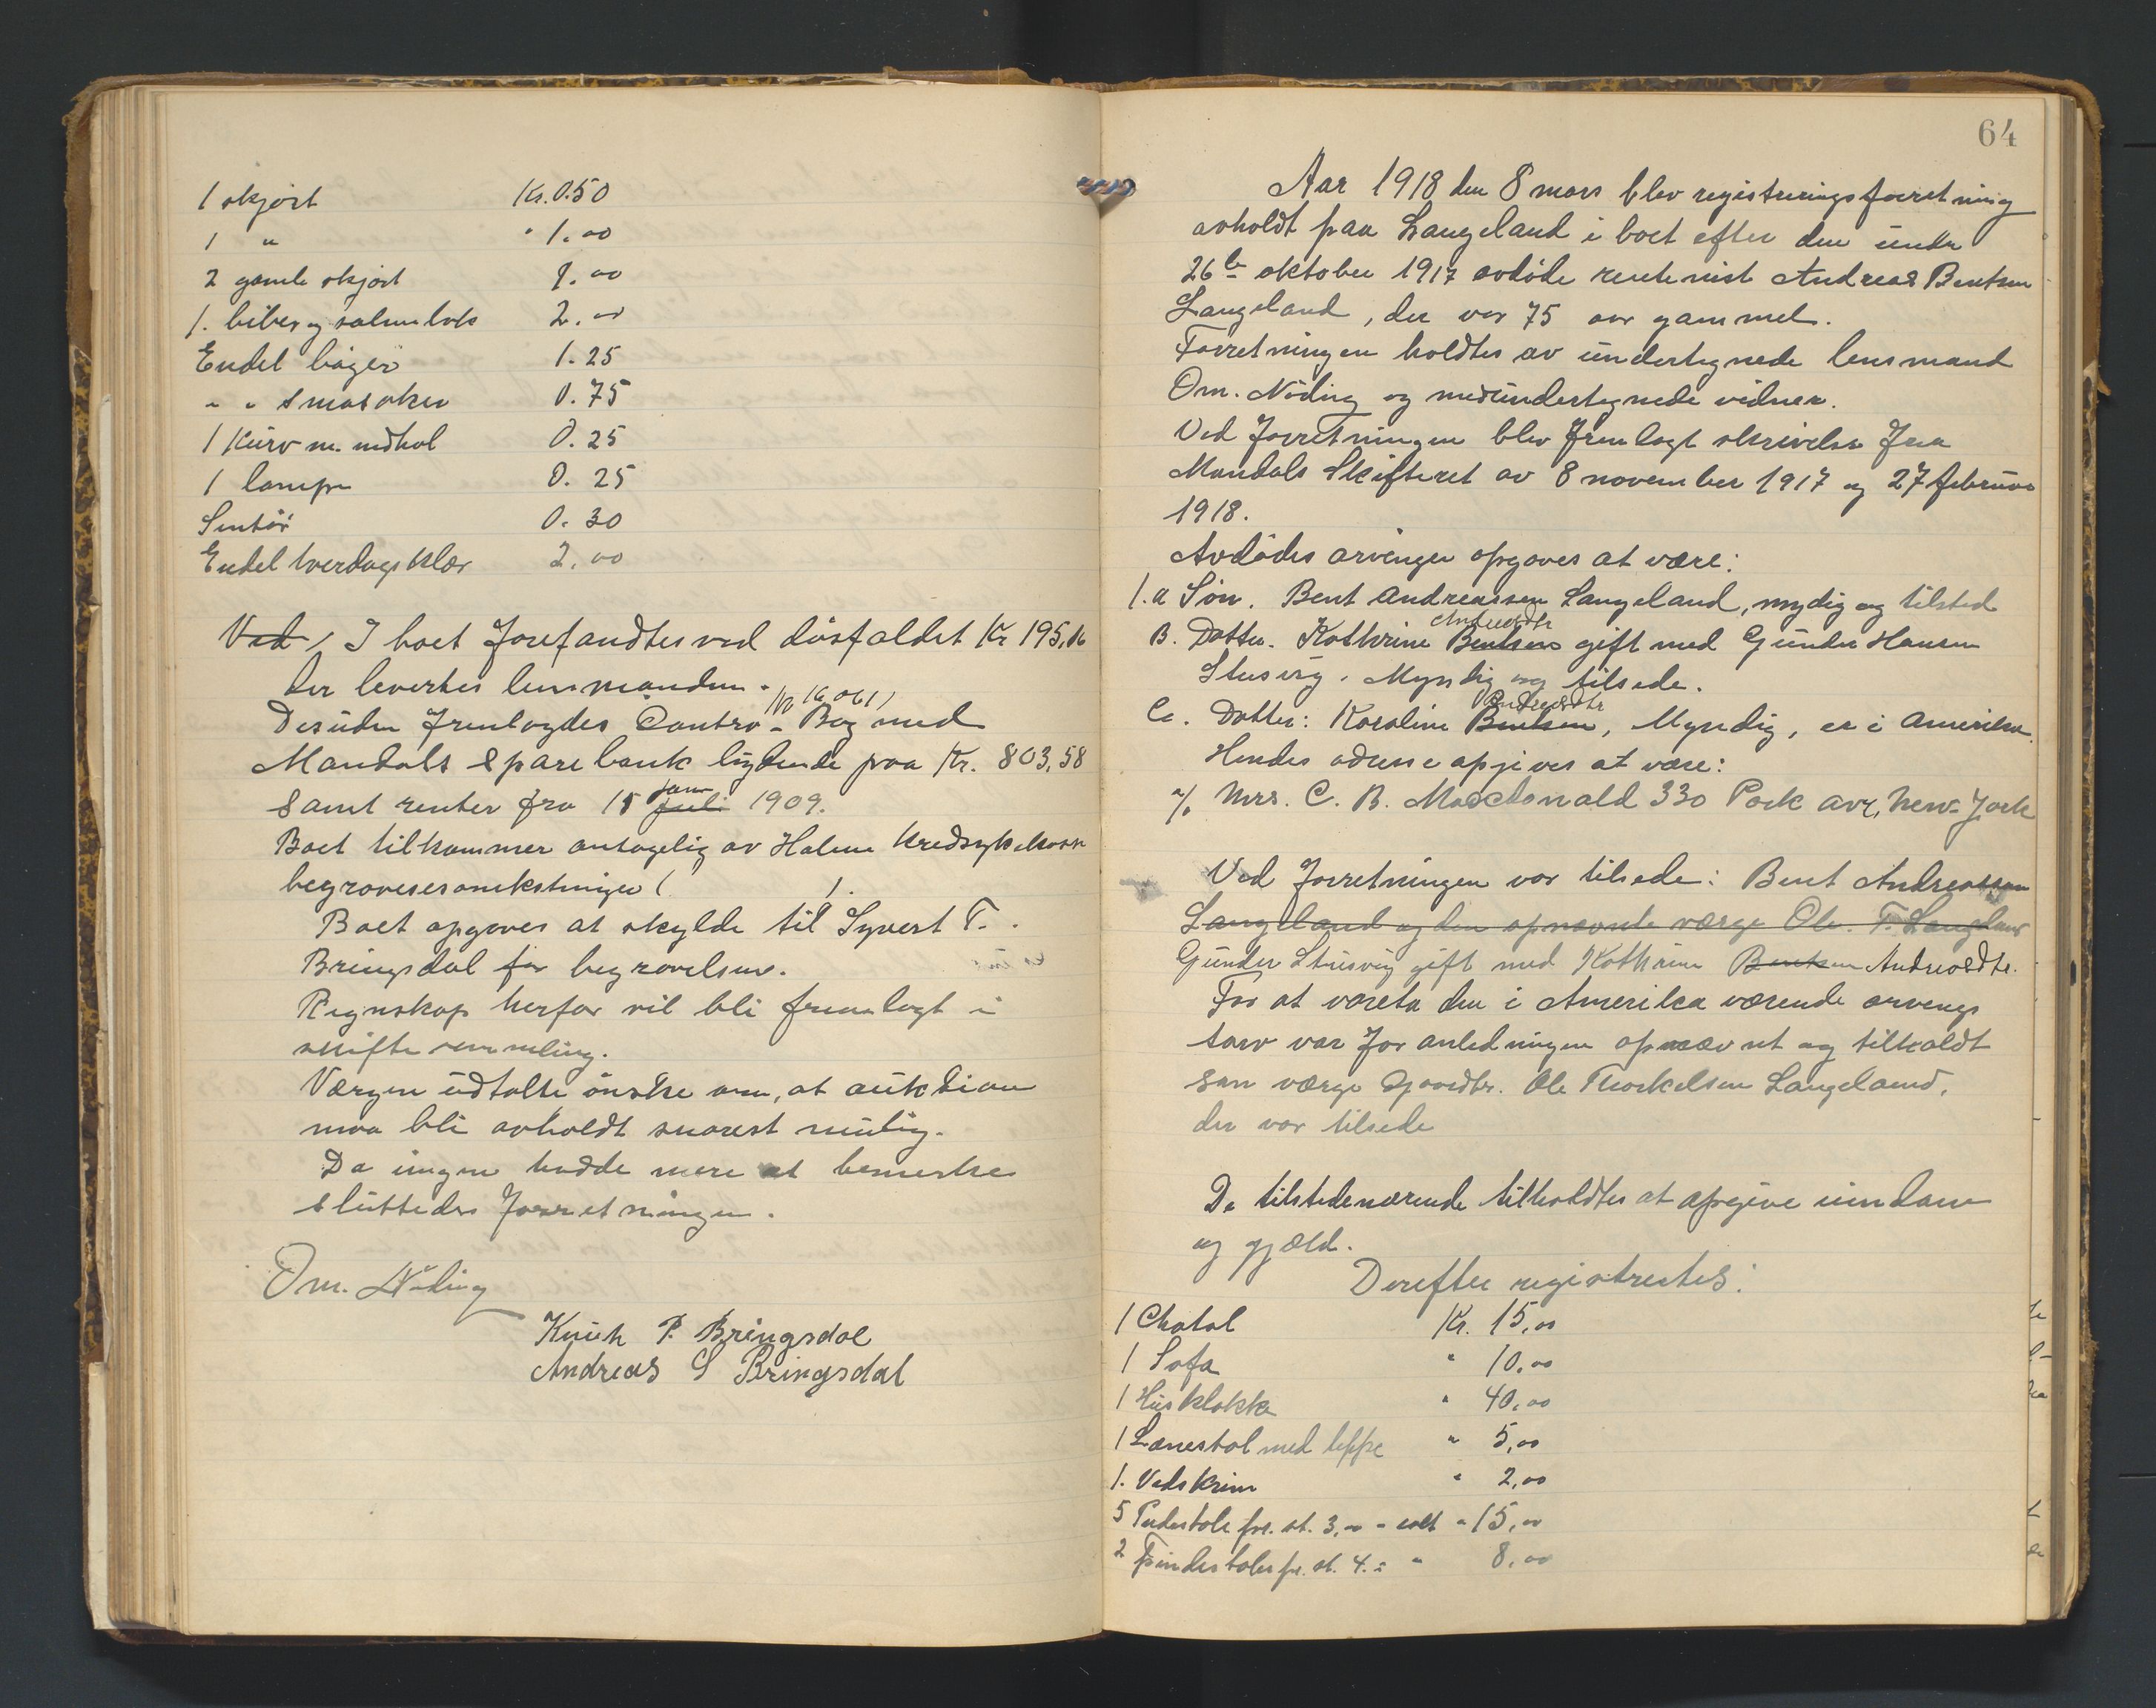 1 skjørt Kr. 0.50
1 " " 1.00
2 gamle skjørt 1.00
1. bibel og salmebok 2.00
Endel bøger 1.25
" " smaasaker 0.75
1 Kurv m. indhol 0.25
1 lampe 0.25
0.30
Endel hverdagsklær 2.00
Ved, I boet forefandtes ved dødsfaldet Kr 195,16
der levertes lensmanden.
Nr 16061)
Desuden fremlagdes Contra-Bog med
Mandals Sparebank lydende paa Kr. 803,58
samt renter fra 15 juli jan 1909.
Boet tilkommer antagelig av Halsne Kredssykekasse
begravelsesomkostninger ( ).
Boet opgaves at skylde til Syvert T.
Bringsdal for begravelsen.
Regnskap herfor vil bli fremlagt i
skiftesammling.
Værgen udtalte ønske om, at auktion
maa bli avholdt snarest mulig.
Da ingen hadde mere at bemerke
sluttedes forretningen.
Om. Nøding
Knuth P. Bringsdal
Andreas S Bringsdal
64
Aar 1918 den 8 mars blev registreringsforretning
avholdt paa Langeland i boet efter den under
26de oktober 1917 avdøde rentenist Andreas Bentsen
Langeland, der var 75 aar gammel.
Forretningen holdtes av undertegnede lensmand
Om. Nøding og medundertegnede vidner.
Ved forretningen blev fremlagt skrivelse fra
Mandals Skifteret av 8 november 1917 og 27 februar
1918.
Avdødes arvinger opgaves at være:
1.a Søn. Bent Andreassen Langeland, mydig og tilsted
Andreasdtr
B. Datter. Kathrine Bentsen gift med Gunder Hansen
Stusvig. Myndig og tilsede.
Andreasdtr
C. Datter: Karoline Bentsen, Myndig, er i Amerika.
Hendes adresse opgives at være:
c/o Mrs. C. B. MacDonald 330 Park ave, New-York
Ved forretningen var tilsede: Bent Andreassen
Langeland og den opnævnte værge Ole. T. Langeland
Gunder Stusvig gift med Kathrine Bentsen Andreasdtr.
For at vareta den i Amerika værende arvengs
tarv var for anledningen opnævnt og tilkaldt
som værge Gaardbr. Ole Thorkelsen Langeland,
der var tilsede
De tilstedeværende tilholdtes at opgive eiendom
og gjæld.
Derefter registrertes:
1 Chatol Kr. 15,00
1 Sofa " 10,00
1 Husklokke " 40,00
1 Lænestol med teppe " 5,00
1. Vedskrin " 2,00
5 Pindestole pr. st. 3,00 - ialt " 15,00
2 Pindestoler pr. st. 4.- " 8,00